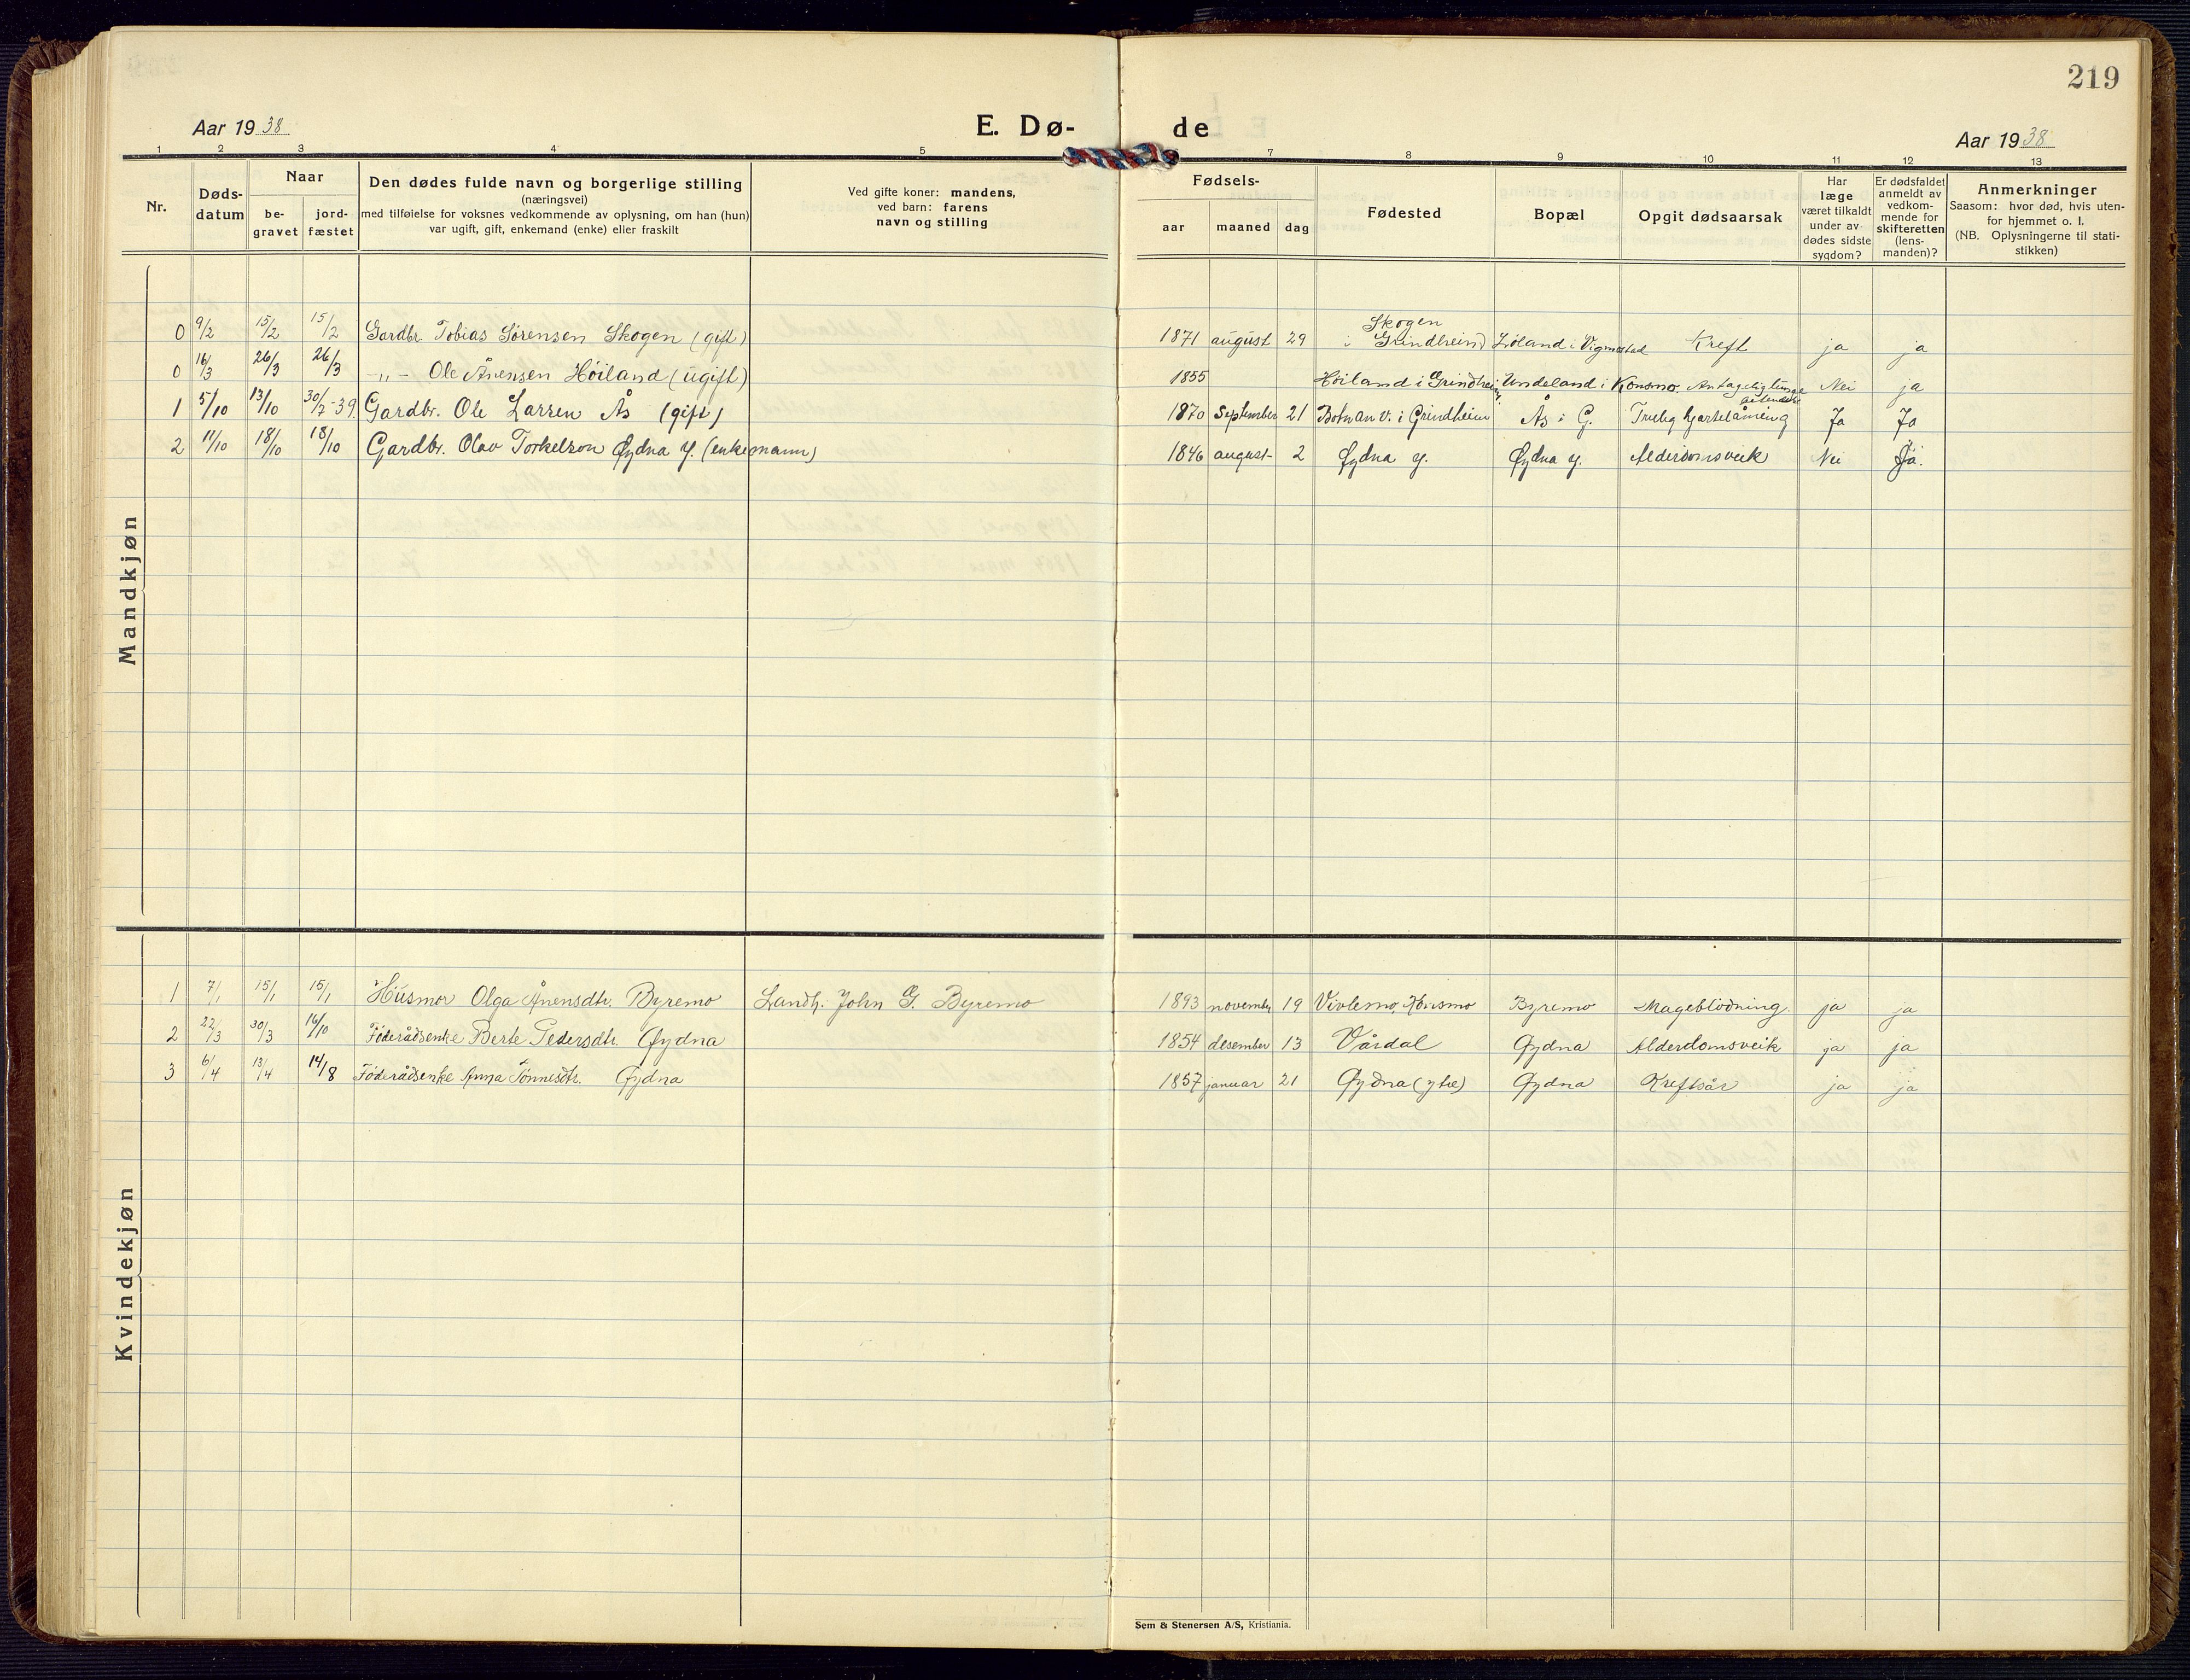 219
Aar 1938
E. Dø-
de
Aar 1938
1 2 3 4 5 7 8 9 10 11 12 13
Nr.
Døds-
datum
Naar
be-
gravet
jord-
fæstet
Den dødes fulde navn og borgerlige stilling
(næringsvei)
med tilføielse for voksnes vedkommende av oplysning, om han (hun)
var ugift, gift, enkemand (enke) eller fraskilt
Ved gifte koner: mandens,
ved barn: farens
navn og stilling
Fødsels-
aar
maaned
dag
Fødested
Bopæl
Opgit dødsaarsak
Har
læge
været tilkaldt
under av-
dødes sidste
sygdom?
Er dødsfaldet
anmeldt av
vedkom-
mende for
skifteretten
(lens-
manden)?
Anmerkninger
Saasom: hvor død, hvis uten-
for hjemmet o. l.
(NB. Oplysningerne til stati-
stikken)
Mandkjøn
0 9/2 15/2 15/2 Gardbr. Tobias Sørensen Skogen (gift) 1871 august 29 Skogen i Grindheim i Vigmostad Kreft ja ja
0 16/3 26/3 26/3 -"- Ole Ånensen Höiland (ugift) 1855 Höiland i Grindheim Undeland i Konsmo. Antagelig Nei ja
1 5/10 13/10 Gardbr. Ole Larsen Ås (gift) 1870 September 21 i Grindheim Ås i G. Ja Ja
2 11/10 18/10 18/10 Gardbr. Olav Torkelson Øydna y. (enkemann) 1846 august 2 Øydna y. Øydna y. Alderdomsveik Nei Ja.
Kvindekjøn
1 7/1 15/1 15/1 Husmor Olga Ånensdtr. Byremo Landh. John G. Byremo 1893 november 19 Vivlemo, Konsmo Byremo Mageblödning. ja ja
2 22/3 30/3 16/10 Föderådsenke Berte Pedersdtr. Øydna 1854 desember 13 Vårdal Øydna Alderdomsveik ja ja
3 6/4 13/4 14/8 Föderådsenke Anna Tönnesdtr. Øydna 1857 januar 21 Øydna (ytre) Øydna Kreftsår ja ja
Sem & Stenersen A/S, Kristiania.